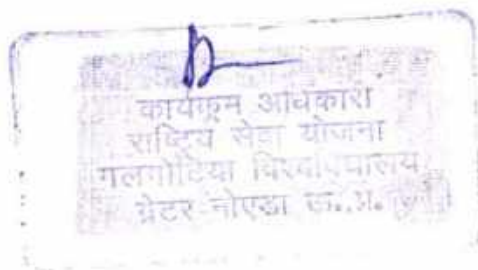 कार्यक्रम अधिकारी
राष्ट्रिय सेवा योजना
गलगोटिया विश्वविद्यालय
ग्रेटर नोएडा उ.प्र.